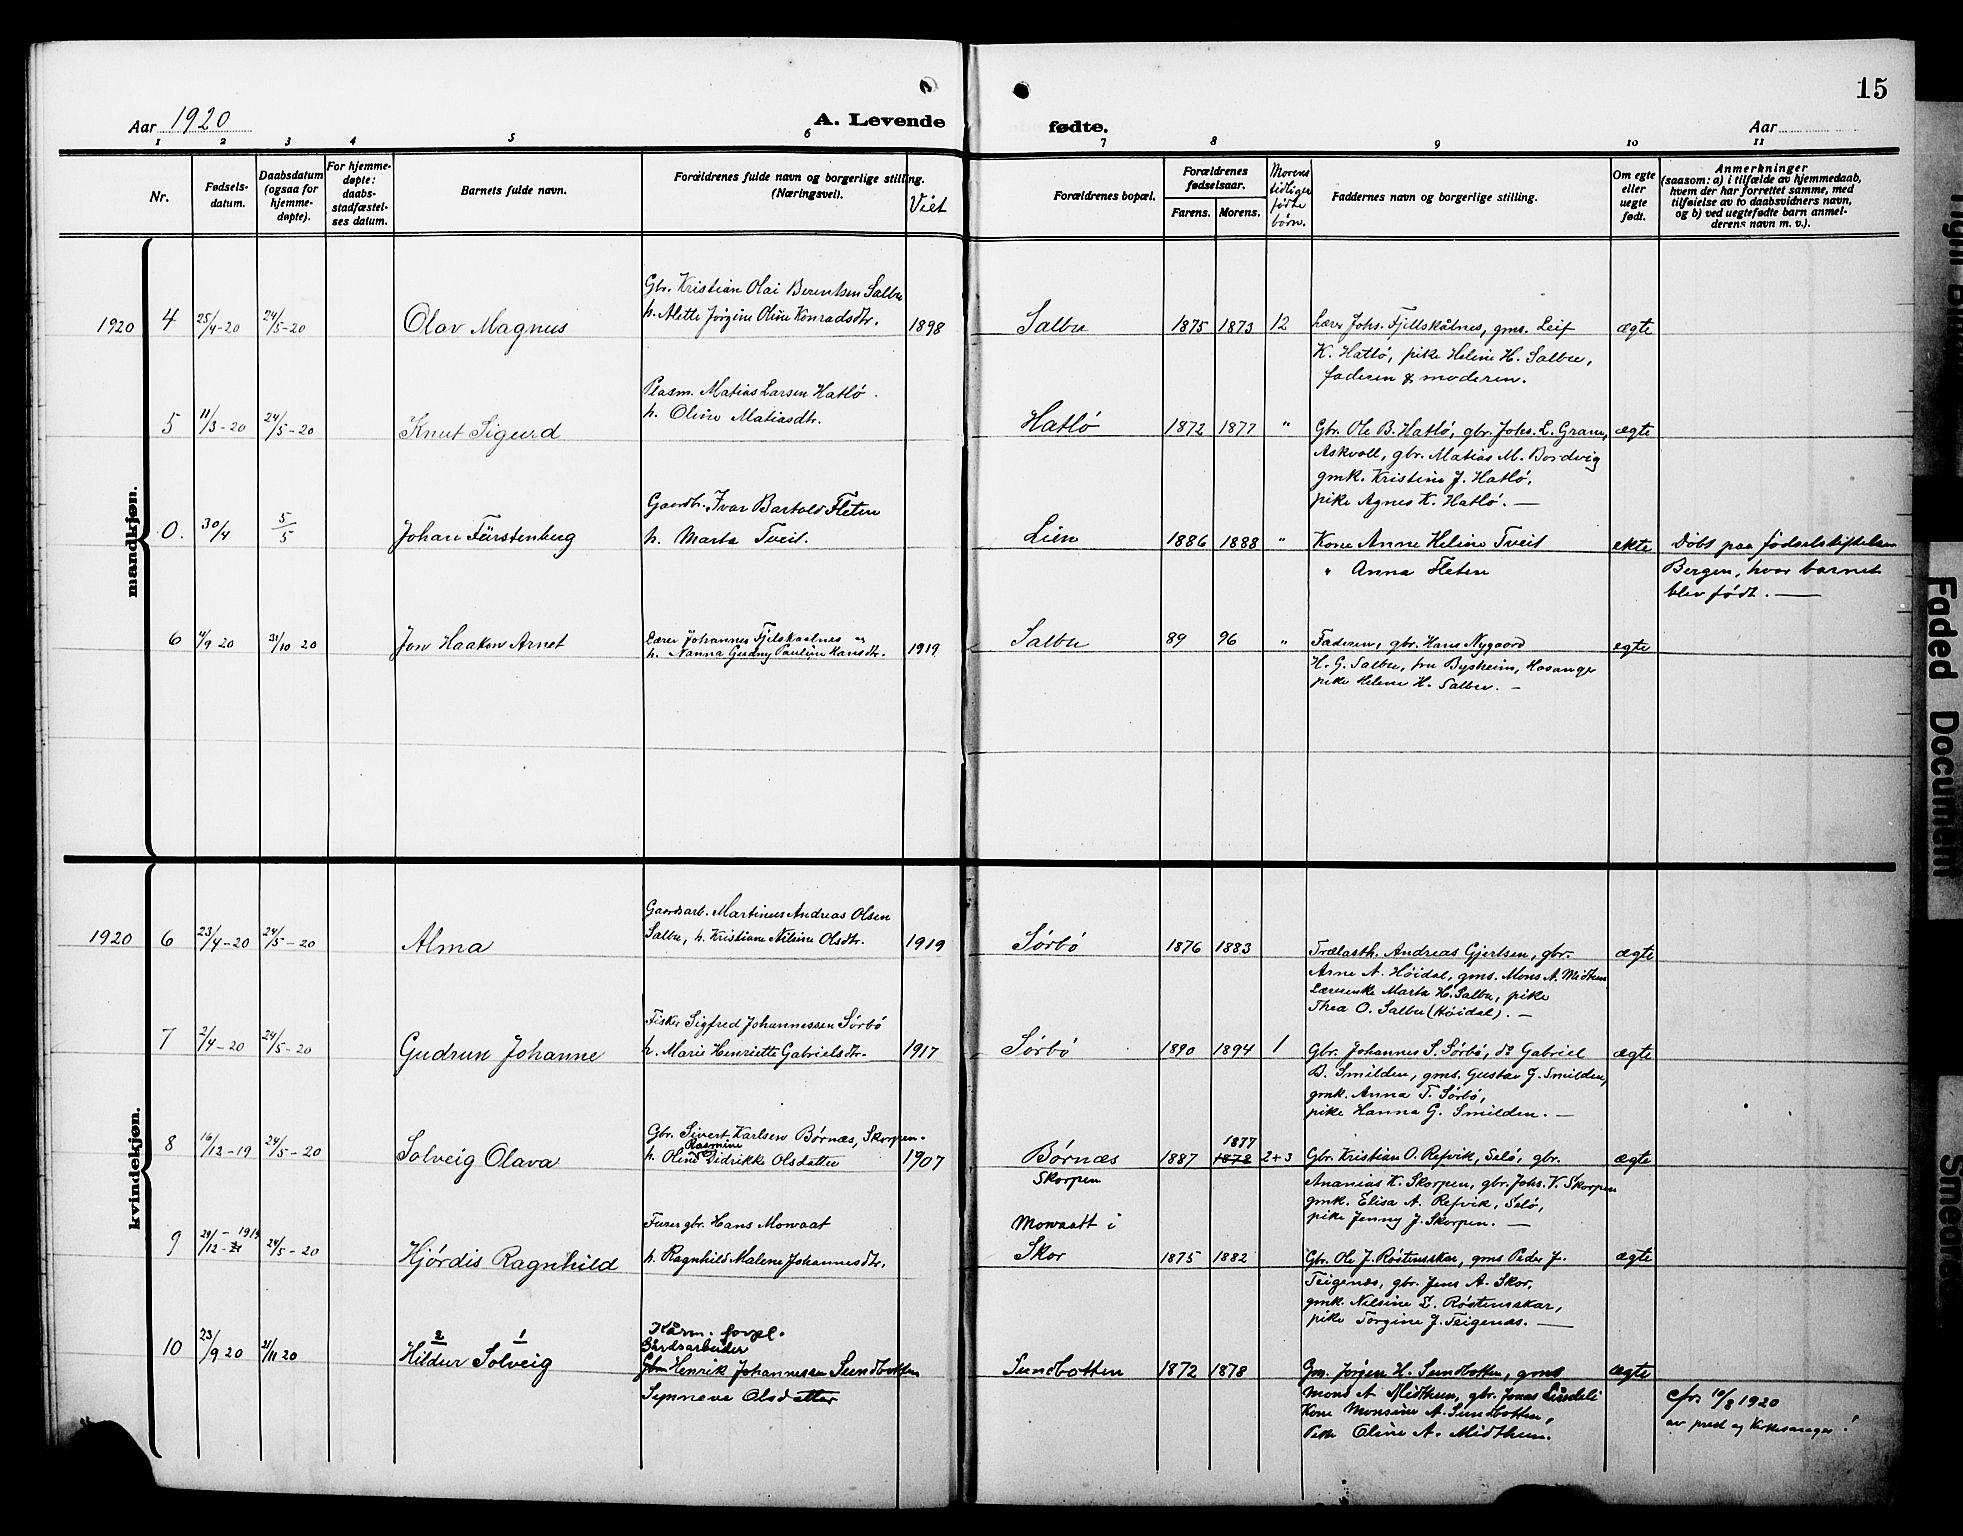 15
Aar 1920
A. Levende fødte.
Aar
1 2 3 4 5 6 7 8 9 10 11
Nr.
Fødsels-
datum.
Daabsdatum
(ogsaa for
hjemme-
døpte).
For hjemme-
døpte:
daabs-
stadfæstel-
ses datum.
Barnets fulde navn.
Forældrenes fulde navn og borgerlige stilling.
(Næringsvei).
Viet
Forældrenes bopæl.
Forældrenes
fødselsaar.
Farens. Morens.
Morens
tidliger
fødte
børn.
Faddernes navn og borgerlige stilling.
Om egte
eller
uegte
født.
Anmerkninger
(saasom: a) i tilfælde av hjemmedaab,
hvem der har forrettet samme, med
tilføielse av to daabsvidners navn,
og b) ved uegtefødte barn anmel-
derens navn m. v.).
mandkjøn.
Gbr. Kristian Olai Berentsen Salbu
1920 4 25/4-20 24/5-20 Olav Magnus h. Alette Jørgine Oline Konradsdtr. 1898 Salbu 1875 1873 12 Lærer Johs. Fjellskålnes, gms. Leif ægte
K. Hatlö, pike Heline H. Salbu,
faderen & moderen.
Plasm. Matias Larsen Hatlö.
h. Oline Matiasdtr.
5 11/3-20 24/5-20 Knut Sigurd Hatlö 1872 1877 " Gbr. Ole B. Hatlö, gbr. Johs. L. Gram, ægte
Askvoll, gbr. Matias M. Bordvig
gmk. Kristine J. Hatlö,
pike Agnes K. Hatlö. —
Gaardbr. Ivar Bartold Fleten
0. 30/4 5/5 Johan Fürstenberg h. Marta Tveit. Lien 1886 1888 " Kone Anne Heline Tveit ekte Döbt paa födselstiftelsen
" Anna Fleten Bergen, hvor barnet
blev födt. —
6 4/9 20 31/10 20 Jon Haakon Arnet Lærer Johannes Fjelskaalnes og Salbu 89 96 " Faderen, gbr. Hans Nygaard egte
h. Nanna Gudny Pauline Hansdtr. 1919
H. G. Salbu, fru Bysheim, Hosanger
pike Helene H. Salbu. —
kvindekjøn.
Gaardsarb. Martinus Andreas Olsen
1920 6 23/4-20 24/5-20 Alma Salbu, h. Kristiane Nilsine Olsdtr. 1919 Sörbö 1876 1883 Trælasth. Andreas Gjertsen, gbr. ægte
Arne A. Höidal, gms. Mons A. Midthun
Lærerinde Marta H. Salbu, pike
Thea O. Salbu (Höidal). —
Fisker Sigfred Johannessen Sörbö
7 2/4-20 24/5-20 Gudrun Johanne h. Marie Henriette Gabrielsdtr. 1917 Sörbö 1890 1894 1 Gbr. Johannes S. Sörbö, do Gabriel ægte
B. Smilden, gms. Gustav J. Smilden,
gmk. Anna T. Sörbö,
pike Hanna G. Smilden. —
Gbr. Sivert Karlsen Börnæs, Skorpen.
Rasmine 1877
8 16/12-19 24/5-20 Solveig Olava h. Oline Didrikke Olsdatter 1907 Börnæs 1887 1878 2+3 Gbr. Kristian O. Refvik, Selö, gbr. ægte
Skorpen Ananias K. Skorpen, gbr. Johs. V. Skorpen
gmk. Elisa A. Refvik, Selö,
pike Jenny J. Skorpen. —
Furer gbr. Hans Mowaat Mowaatt i
9 29/12-1919 24/5-20 Hjördis Ragnhild h. Ragnhild Malene Johannesdtr. Skor 1875 1882 Gbr. Ole J. Röstenskar, gms Peder J. ægte
Teigenæs, gbr. Jens A. Skor,
gmk. Nilsine L. Röstenskar,
pike Torgine J. Teigenæs. —
2 1
Gårdsarbeider
10 23/9 20 21/11 20 Hildur Solveig Gbr. Henrik Johannessen Sundbotten Sundbotten 1872 1878 Gm. Jörgen H. Sundbotten, gms ægte
Synneve Olsdatter
Mons A Midthun, gbr. Jonas Lindeli
Kone Monsine A. Sundbotten,
Pike Oline A. Midthun.
cfr. 10/8 1920
Faded Document